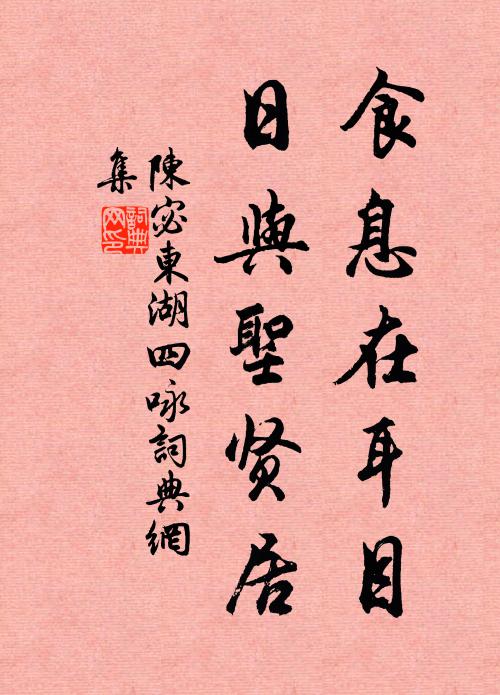 食息在耳目
日與聖贤居
陳宓東湖四咏詞典網
集
詞典
网印